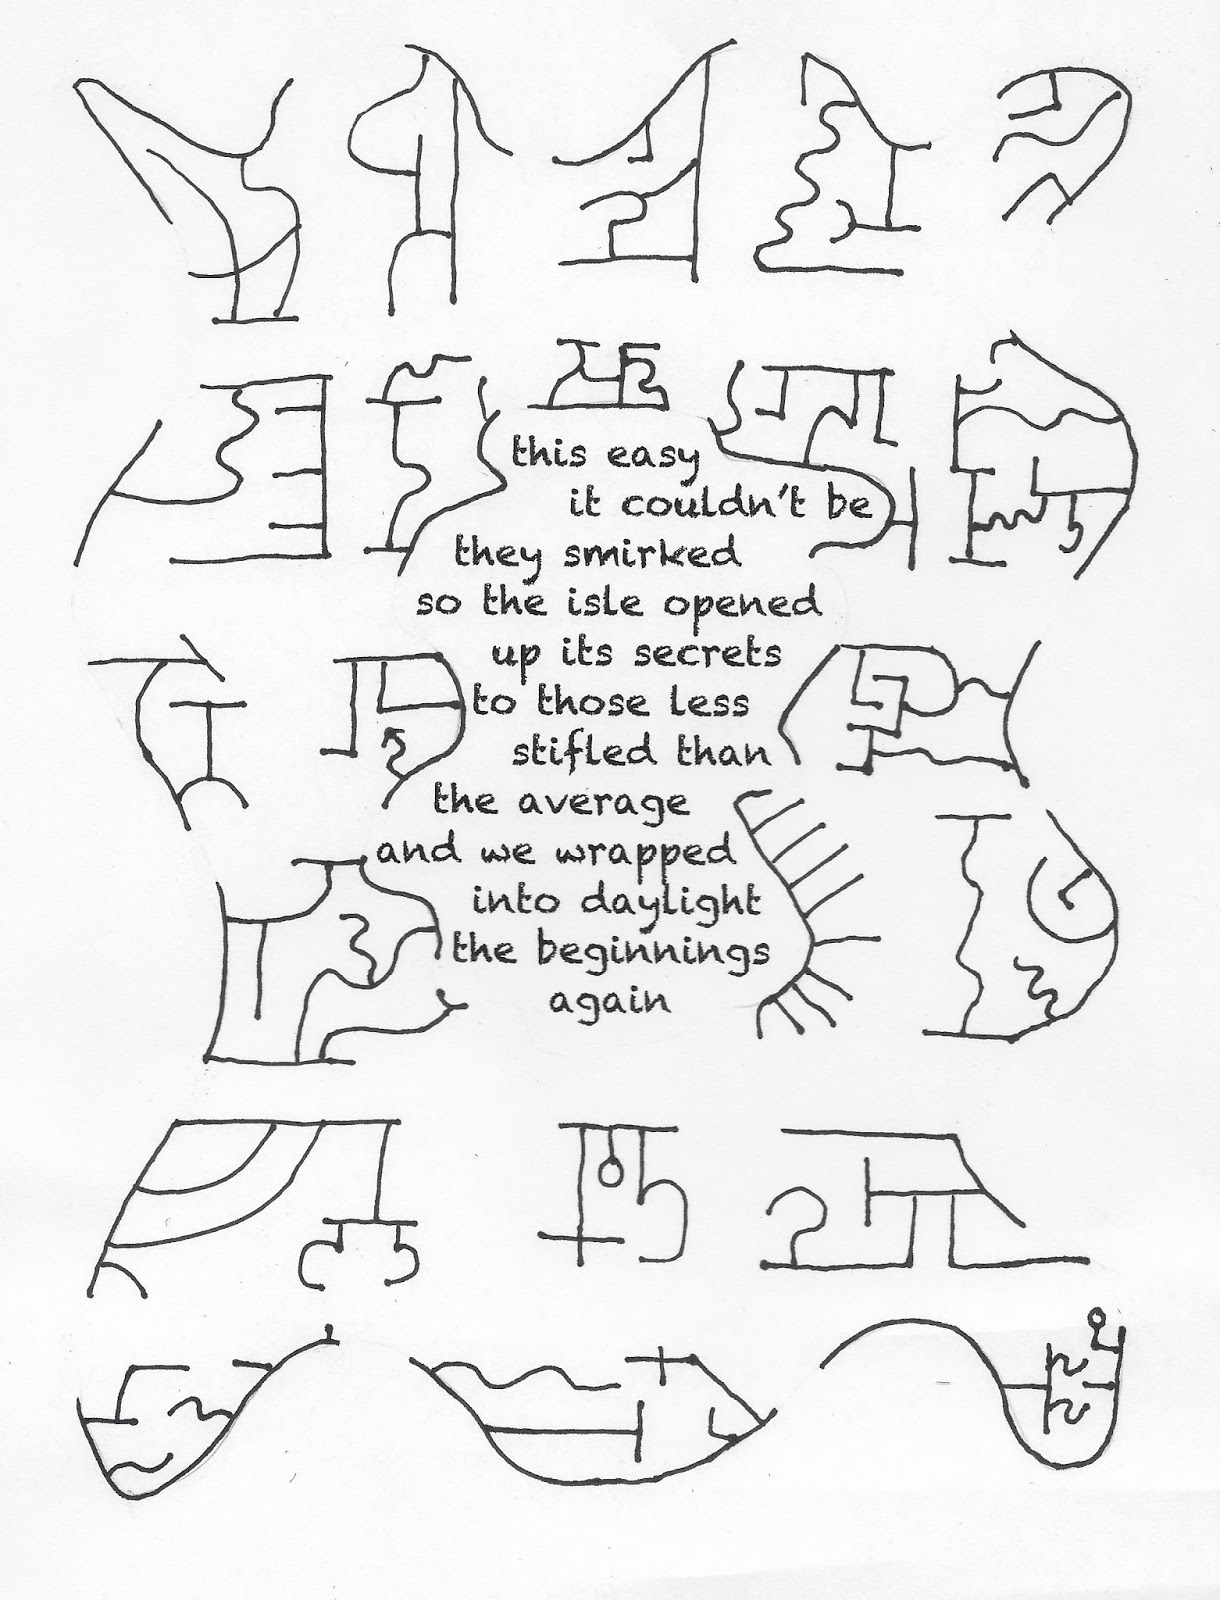 this easy
it couldn't be
they smirked
so the isle opened
up its secrets
to those less
stifled than
the average
and we wrapped
into daylight
the beginnings
again